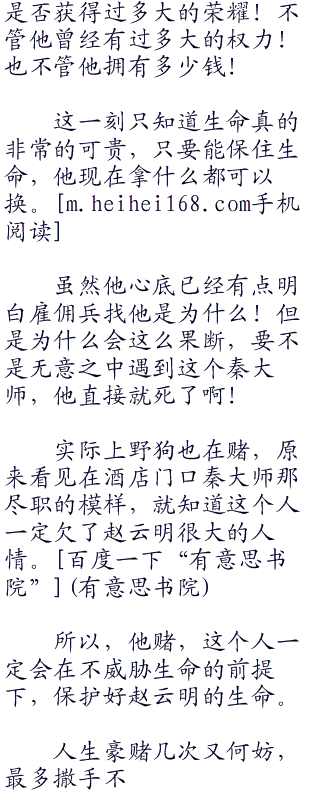 是否获得过多大的荣耀！不
管他曾经有过多大的权力！
也不管他拥有多少钱！
这一刻只知道生命真的
非常的可贵，只要能保住生
命，他现在拿什么都可以
换。[m.heihei168.com手机
阅读]
虽然他心底已经有点明
白雇佣兵找他是为什么！但
是为什么会这么果断，要不
是无意之中遇到这个秦大
师，他直接就死了啊！
实际上野狗也在赌，原
来看见在酒店门口秦大师那
尽职的模样，就知道这个人
一定欠了赵云明很大的人
情。[百度一下“有意思书
院”](有意思书院)
所以，他赌，这个人一
定会在不威胁生命的前提
下，保护好赵云明的生命。
人生豪赌几次又何妨，
最多撒手不